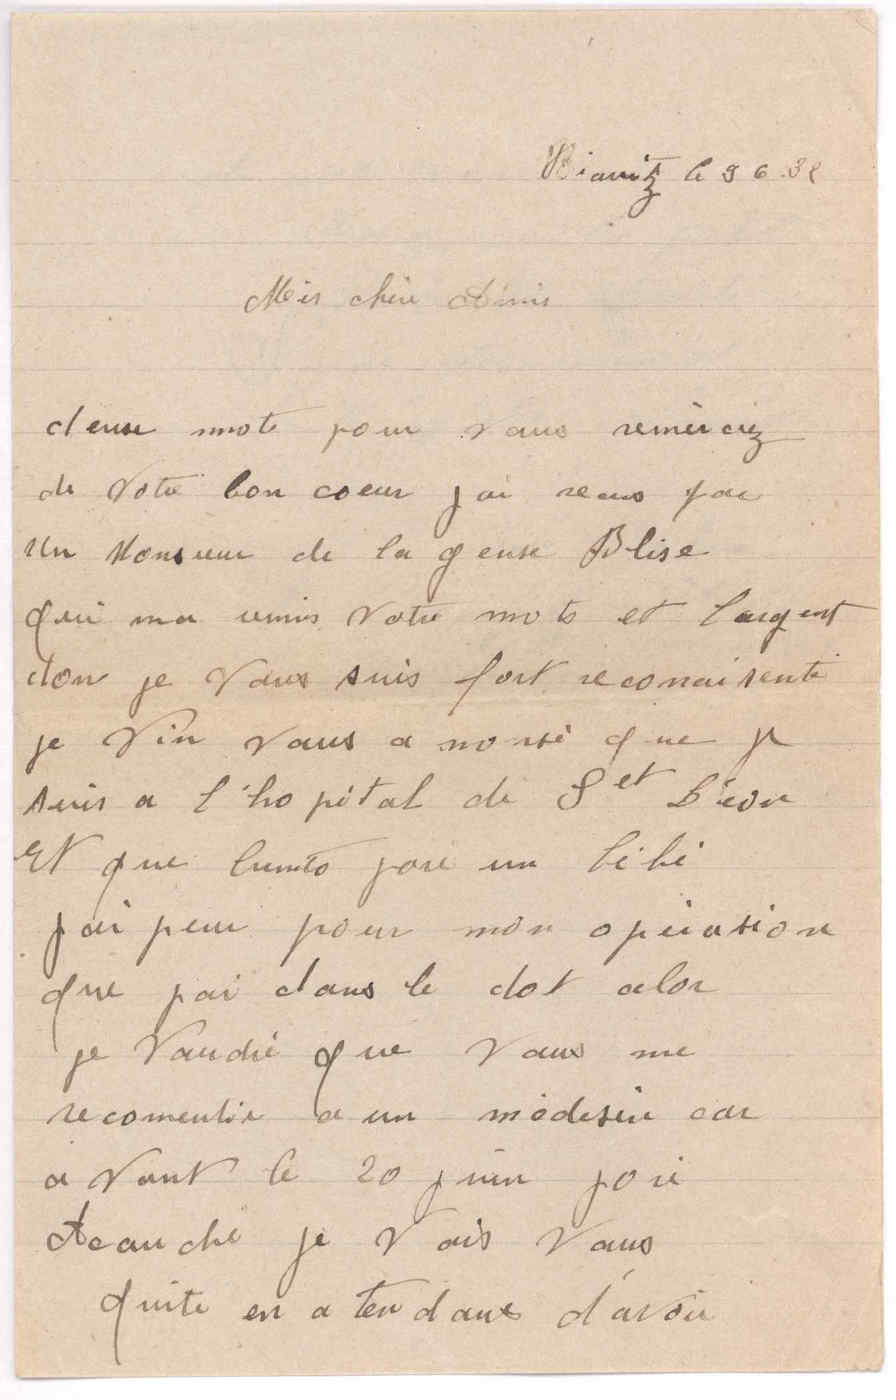 Biarritz le 9 6 38
Meis chère Amis
deuse mote pour vous remèrciez
de votre bon coeur jai recus par
un Monsieur de la geuse Blise
qui ma remis votre mots et largent
don je vous suis fort reconaisente
je vin vous a nonsé que je
suis a l'hopital de Set Léon
Et que biento joré un bébé
jai peur pour mon opérasion
que jai dans le dot alor
je voudré que vous me
recomendie a un médesin car
avant le 20 juin joré
Acauché je vais vous
quite en a tendans d'avoir